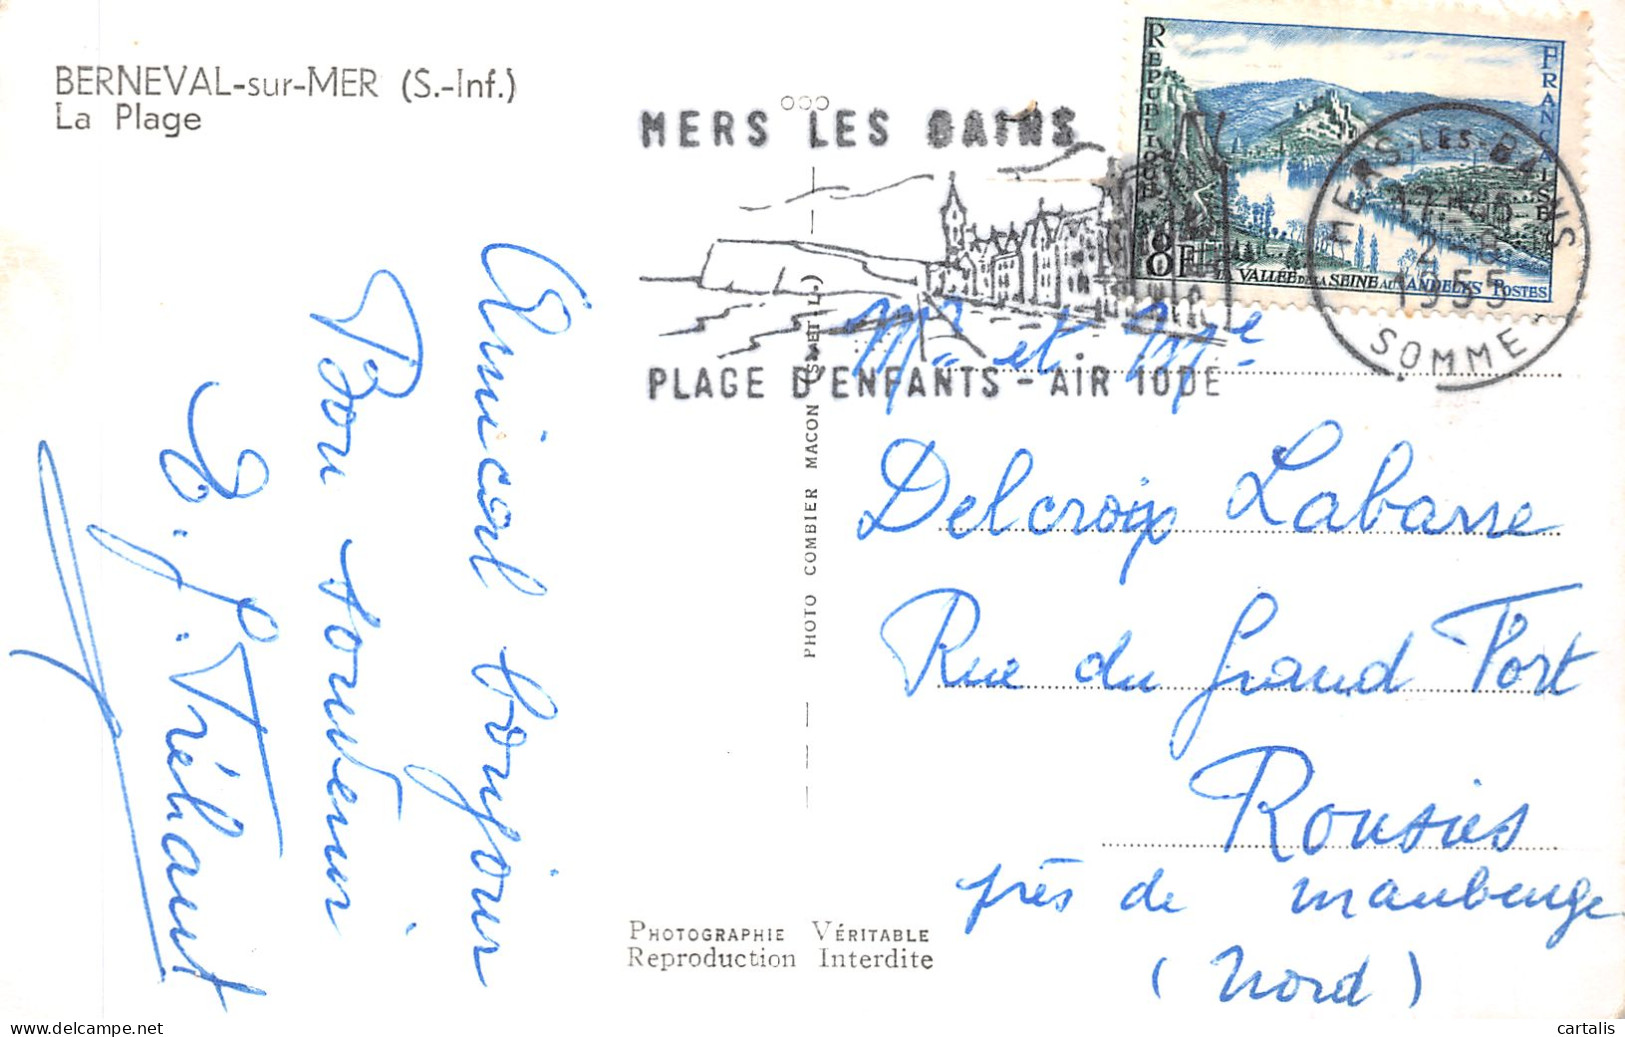 BERNEVAL-sur-MER (S.-Inf.)
La Plage
MERS LES BAINS
PLAGE D'ENFANTS - AIR IODE
REPUBLIQUE
FRANCAISE
8F
LA VALLÉE DE LA SEINE AUX ANDELYS POSTES
MERS-LES-BAINS
1955
SOMME
Amical bonjour
Bon souvenir
Tréhaut
PHOTO COMBIER MACON (S. ET L.)
Mr et Mme
Delcroix Labarre
Rue du Grand Fort
Rousies
près de Maubeuge
(Nord)
PHOTOGRAPHIE VÉRITABLE
Reproduction Interdite
cartalis